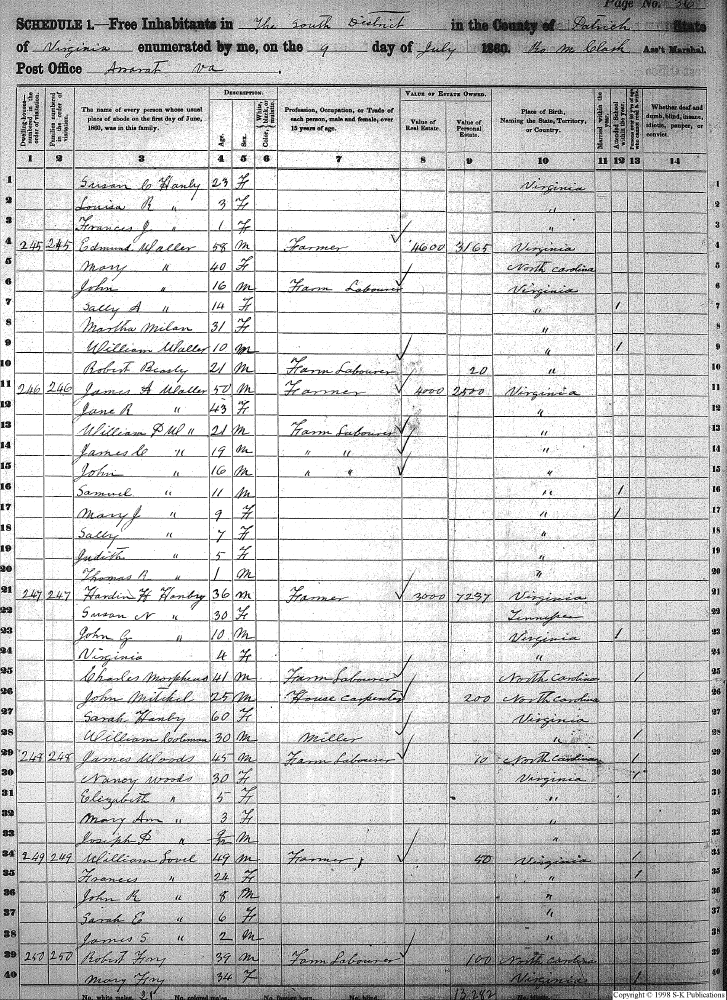 Page No. 36
SCHEDULE 1.—Free Inhabitants in The South District in the County of Patrick State
of Virginia enumerated by me, on the 9 day of July 1860. M Clark Ass't Marshal.
Post Office Ararat Va.
Dwelling-houses—numbered in the order of visitation.
Families numbered in the order of visitation.
The name of every person whose usual place of abode on the first day of June, 1860, was in this family.
DESCRIPTION.
Age.
Sex.
Color, White, black, or mulatto.
Profession, Occupation, or Trade of each person, male and female, over 15 years of age.
VALUE OF ESTATE OWNED.
Value of Real Estate.
Value of Personal Estate.
Place of Birth, Naming the State, Territory, or Country.
Married within the year.
Attended School within the year.
Whether deaf and dumb, blind, insane, idiotic, pauper, or convict.
1 2 3 4 5 6 7 8 9 10 11 12 13 14
1 Susan C Hanby 23 F Virginia 1
2 Louisa R " 3 F " 2
3 Frances J " 1 F " 3
4 245 245 Edmund Waller 58 M Farmer 4600 3165 Virginia 4
5 Mary " 40 F North Carolina 5
6 John " 16 M Farm Labourer Virginia 6
7 Sally A " 14 F " 1 7
8 Martha Milan 31 F " 8
9 William Waller 10 M " 1 9
10 Robert Beasly 21 M Farm Labourer 20 " 10
11 246 246 James A Waller 50 M Farmer 4000 2500 Virginia 11
12 Jane R " 43 F " 12
13 William P W " 21 M Farm Labourer " 13
14 James C " 19 M " " " 14
15 John " 16 M " " " 15
16 Samuel " 11 M " 1 16
17 Mary J " 9 F " 1 17
18 Sally " 7 F " 18
19 Judith " 5 F " 19
20 Thomas R " 1 M " 20
21 247 247 Hardin H Hanby 36 M Farmer 3000 7237 Virginia 21
22 Susan N " 30 F Tennessee 22
23 John G " 10 M Virginia 1 23
24 Virginia 4 F " 24
25 Charles Morpheus 41 M Farm Labourer North Carolina 1 25
26 John Mitchel 25 M House Carpenter 200 North Carolina 26
27 Sarah Hanby 60 F Virginia 27
28 William Coleman 30 M Miller " 1 28
29 248 248 James Woods 45 M Farm Labourer 10 North Carolina 1 29
30 Nancy Woods 30 F Virginia 1 30
31 Elizabeth " 5 F " 31
32 Mary Ann " 3 F " 32
33 Joseph P " M " 33
34 249 249 William Sovel 49 M Farmer 50 Virginia 1 34
35 Frances " 24 F " 1 35
36 John R " 8 M " 36
37 Sarah E " 6 F " 37
38 James S " 2 M " 38
39 250 250 Robert Fry 39 M Farm Labourer 100 North Carolina 39
40 Mary Fry 34 F Virginia 1 40
No. white males, 21 No. colored males, No. foreign born, No. blind, 13,282
Copyright © 1998 S-K Publications